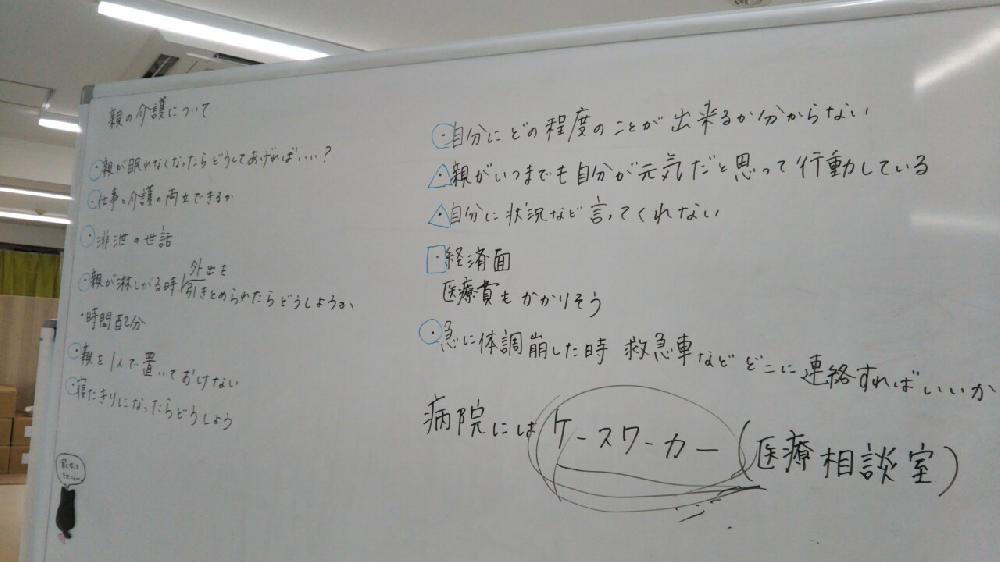 親の介護について
・親が眠れなくなったらどうしてあげればいい?
・仕事と介護の両立できるか
・排泄の世話
・親が淋しがる時外出を
引きとめられたらどうしようか
・時間配分
・親を1人で置いておけない
・寝たきりになったらどうしよう
・自分にどの程度のことが出来るか分からない
・親がいつまでも自分が元気だと思って行動している
・自分に状況など言ってくれない
・経済面
医療費もかかりそう
・急に体調崩した時 救急車などどこに連絡すればいいか
病院にはケースワーカー(医療相談室)